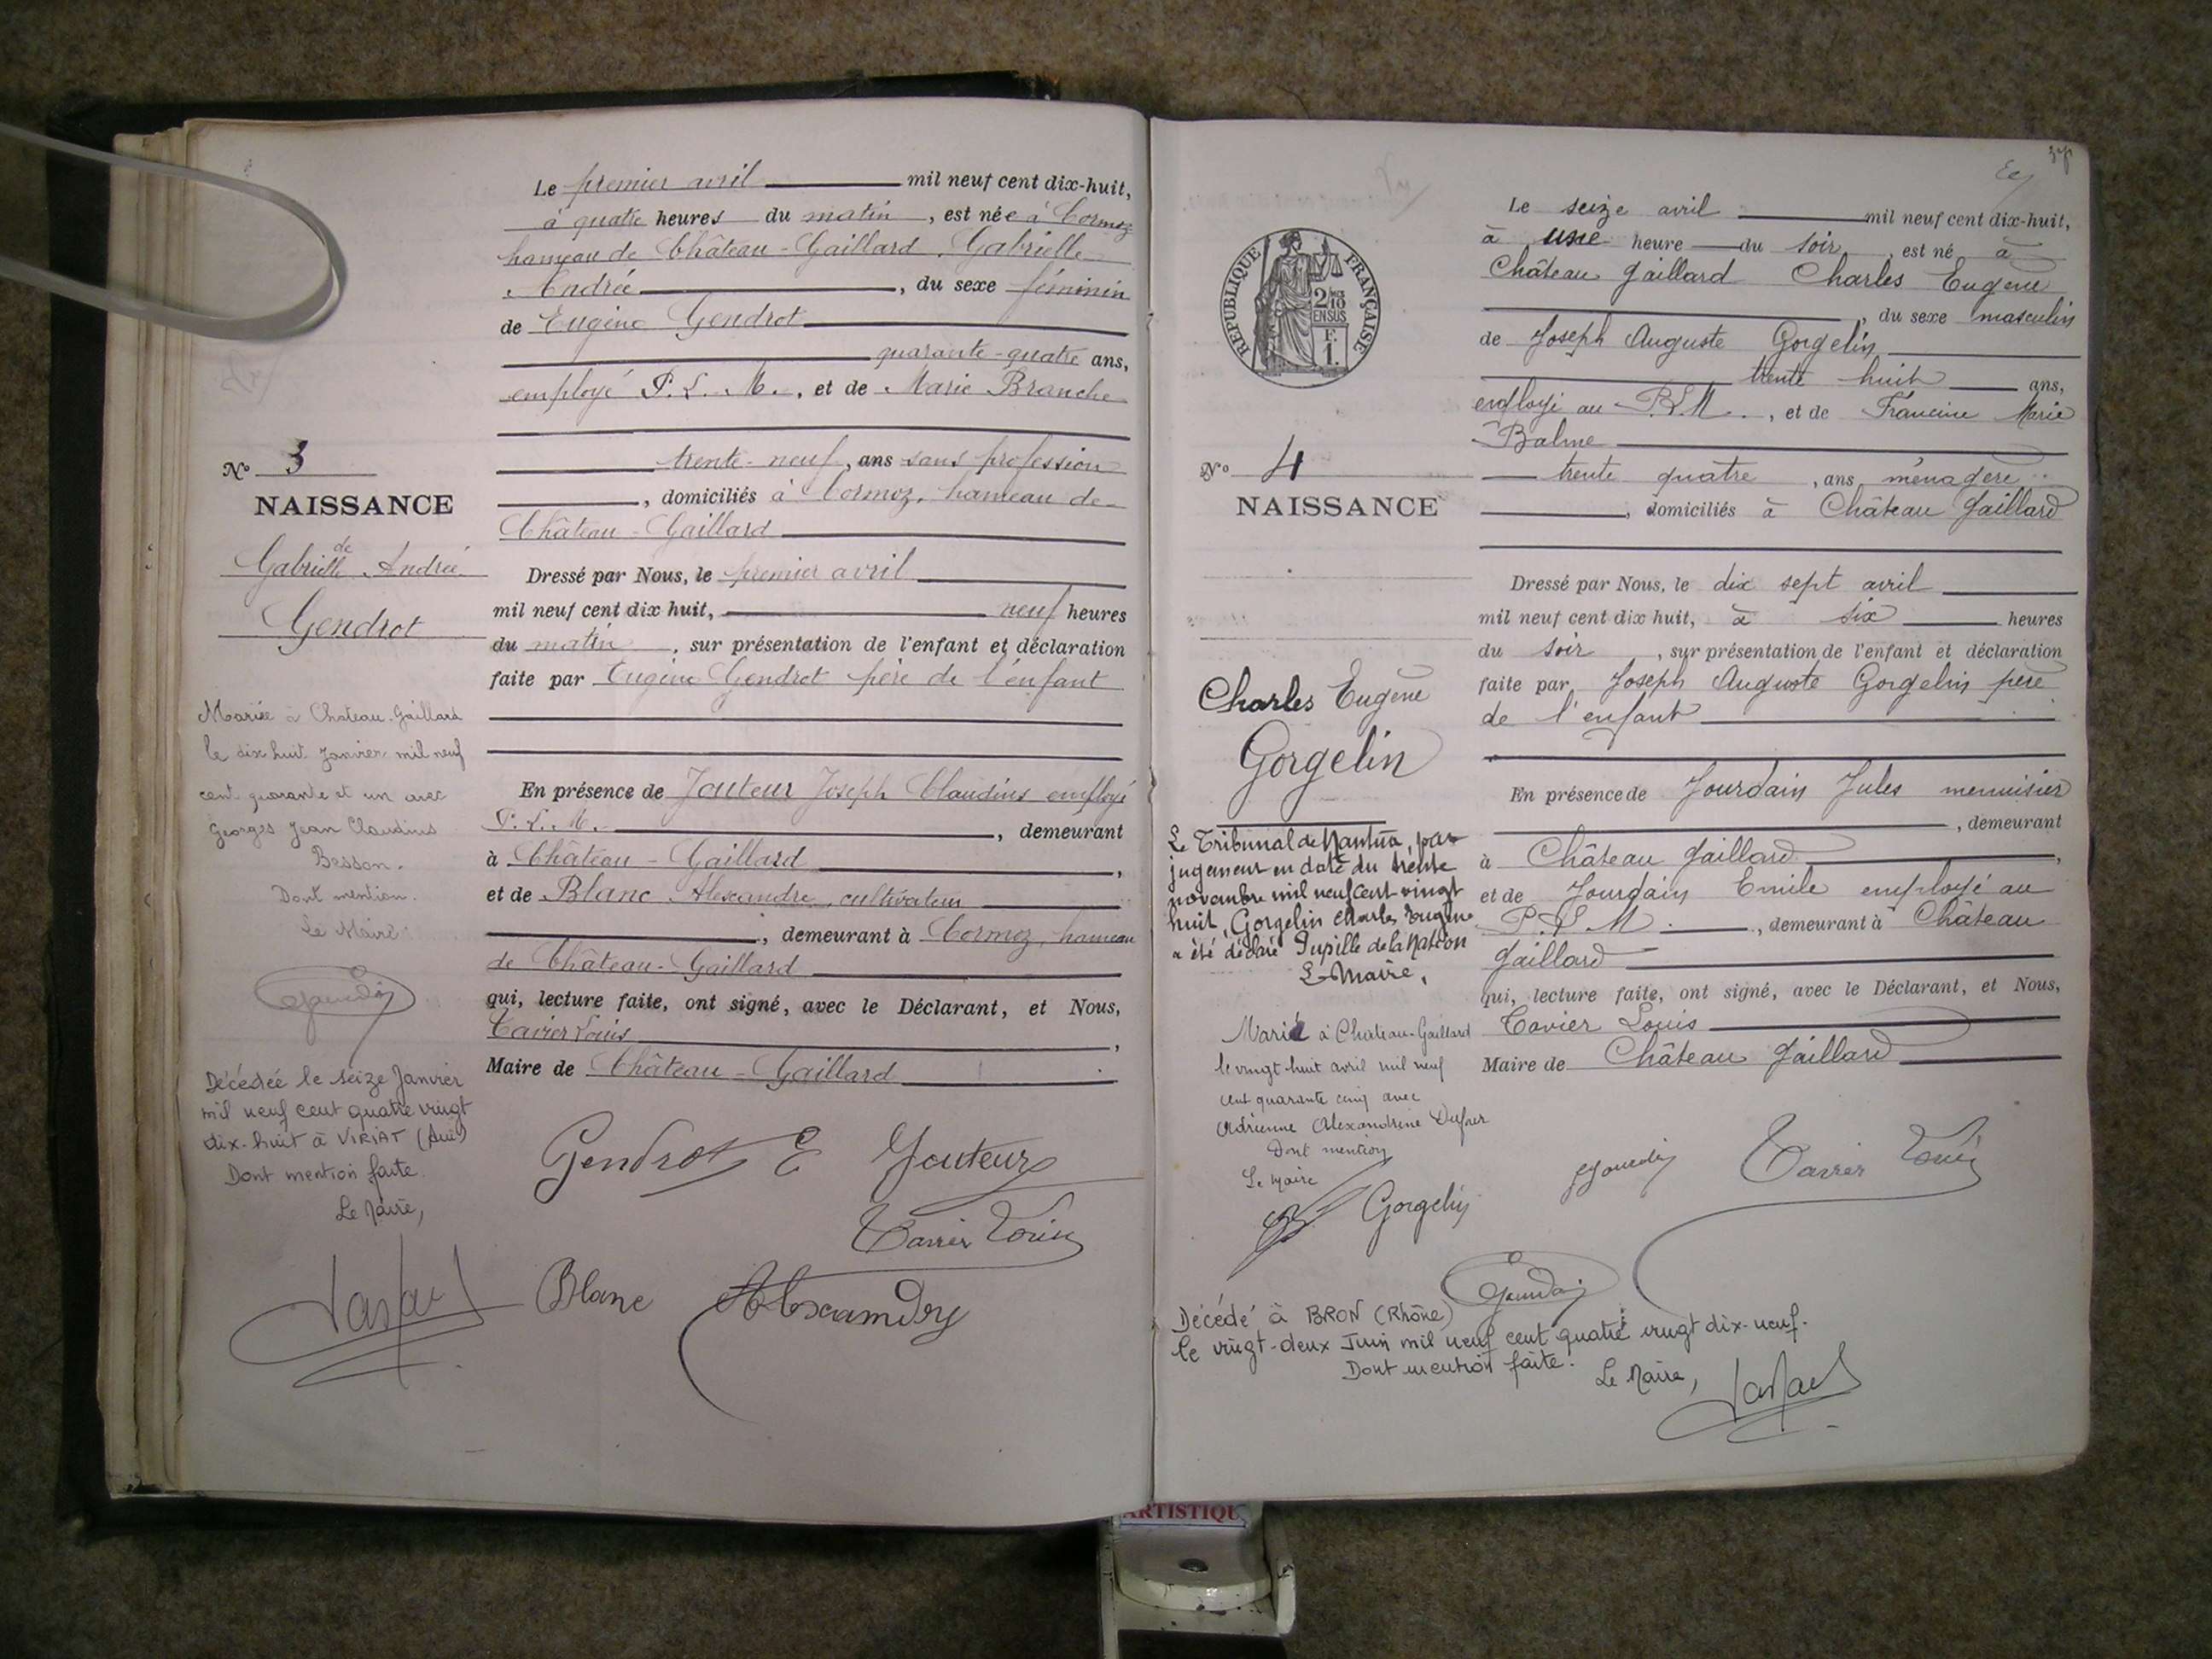 Le premier avril mil neuf cent dix-huit,
à quatre heures du matin, est née à Cormoz
hameau de Château-Gaillard, Gabrielle
Andrée, du sexe féminin
de Eugène Gendrot
quarante-quatre ans,
employé P. L. M., et de Marie Branche
trente-neuf, ans sans profession
, domiciliés à Cormoz, hameau de
Château-Gaillard
Dressé par Nous, le premier avril
mil neuf cent dix huit, neuf heures
du matin, sur présentation de l'enfant et déclaration
faite par Eugène Gendrot père de l'enfant
En présence de Jouteur Joseph Claudius employé
P. L. M., demeurant
à Château-Gaillard,
et de Blanc Alexandre, cultivateur
, demeurant à Cormoz, hameau
de Château-Gaillard
qui, lecture faite, ont signé, avec le Déclarant, et Nous,
Tavier Louis,
Maire de Château-Gaillard
Gendrot E Jouteur
Tavier Louis
Blanc Alexandre
No 3
NAISSANCE
de
Gabrielle Andrée
Gendrot
Mariée à Chateau-Gaillard
le dix huit Janvier mil neuf
cent quarante et un avec
Georges Jean Claudius
Besson.
Dont mention.
Le Maire
Décédée le seize Janvier
mil neuf cent quatre vingt
dix-huit à VIRIAT (Ain)
Dont mention faite.
Le Maire,
RÉPUBLIQUE FRANÇAISE
2/10
EN SUS
F.
1.
No 4
NAISSANCE
Charles Eugène
Gorgelin
Le Tribunal de Nantua, par
jugement en date du trente
novembre mil neuf cent vingt
huit, Gorgelin Charles Eugène
a été déclaré Pupille de la Nation
Le Maire,
Marié à Château-Gaillard
le vingt huit avril mil neuf
cent quarante cinq avec
Adrienne Alexandrine
Dont mention
Le Maire
Le seize avril mil neuf cent dix-huit,
à une heure du soir, est né à
Château Gaillard Charles Eugène
, du sexe masculin
de Joseph Auguste Gorgelin
trente huit ans,
employé au P.L.M., et de Francine Marie
Balme
trente quatre, ans ménagère
, domiciliés à Château Gaillard
Dressé par Nous, le dix sept avril
mil neuf cent dix huit, à six heures
du soir, sur présentation de l'enfant et déclaration
faite par Joseph Auguste Gorgelin père
de l'enfant
En présence de Jourdain Jules menuisier
, demeurant
à Château Gaillard,
et de Jourdain Emile employé au
P.L.M., demeurant à Château
Gaillard
qui, lecture faite, ont signé, avec le Déclarant, et Nous,
Tavier Louis
Maire de Château Gaillard
Gorgelin Jourdain Tavier Louis
Décédé à BRON (Rhône)
le vingt-deux Juin mil neuf cent quatre vingt dix-neuf.
Dont mention faite. Le Maire,
ARTISTIQU